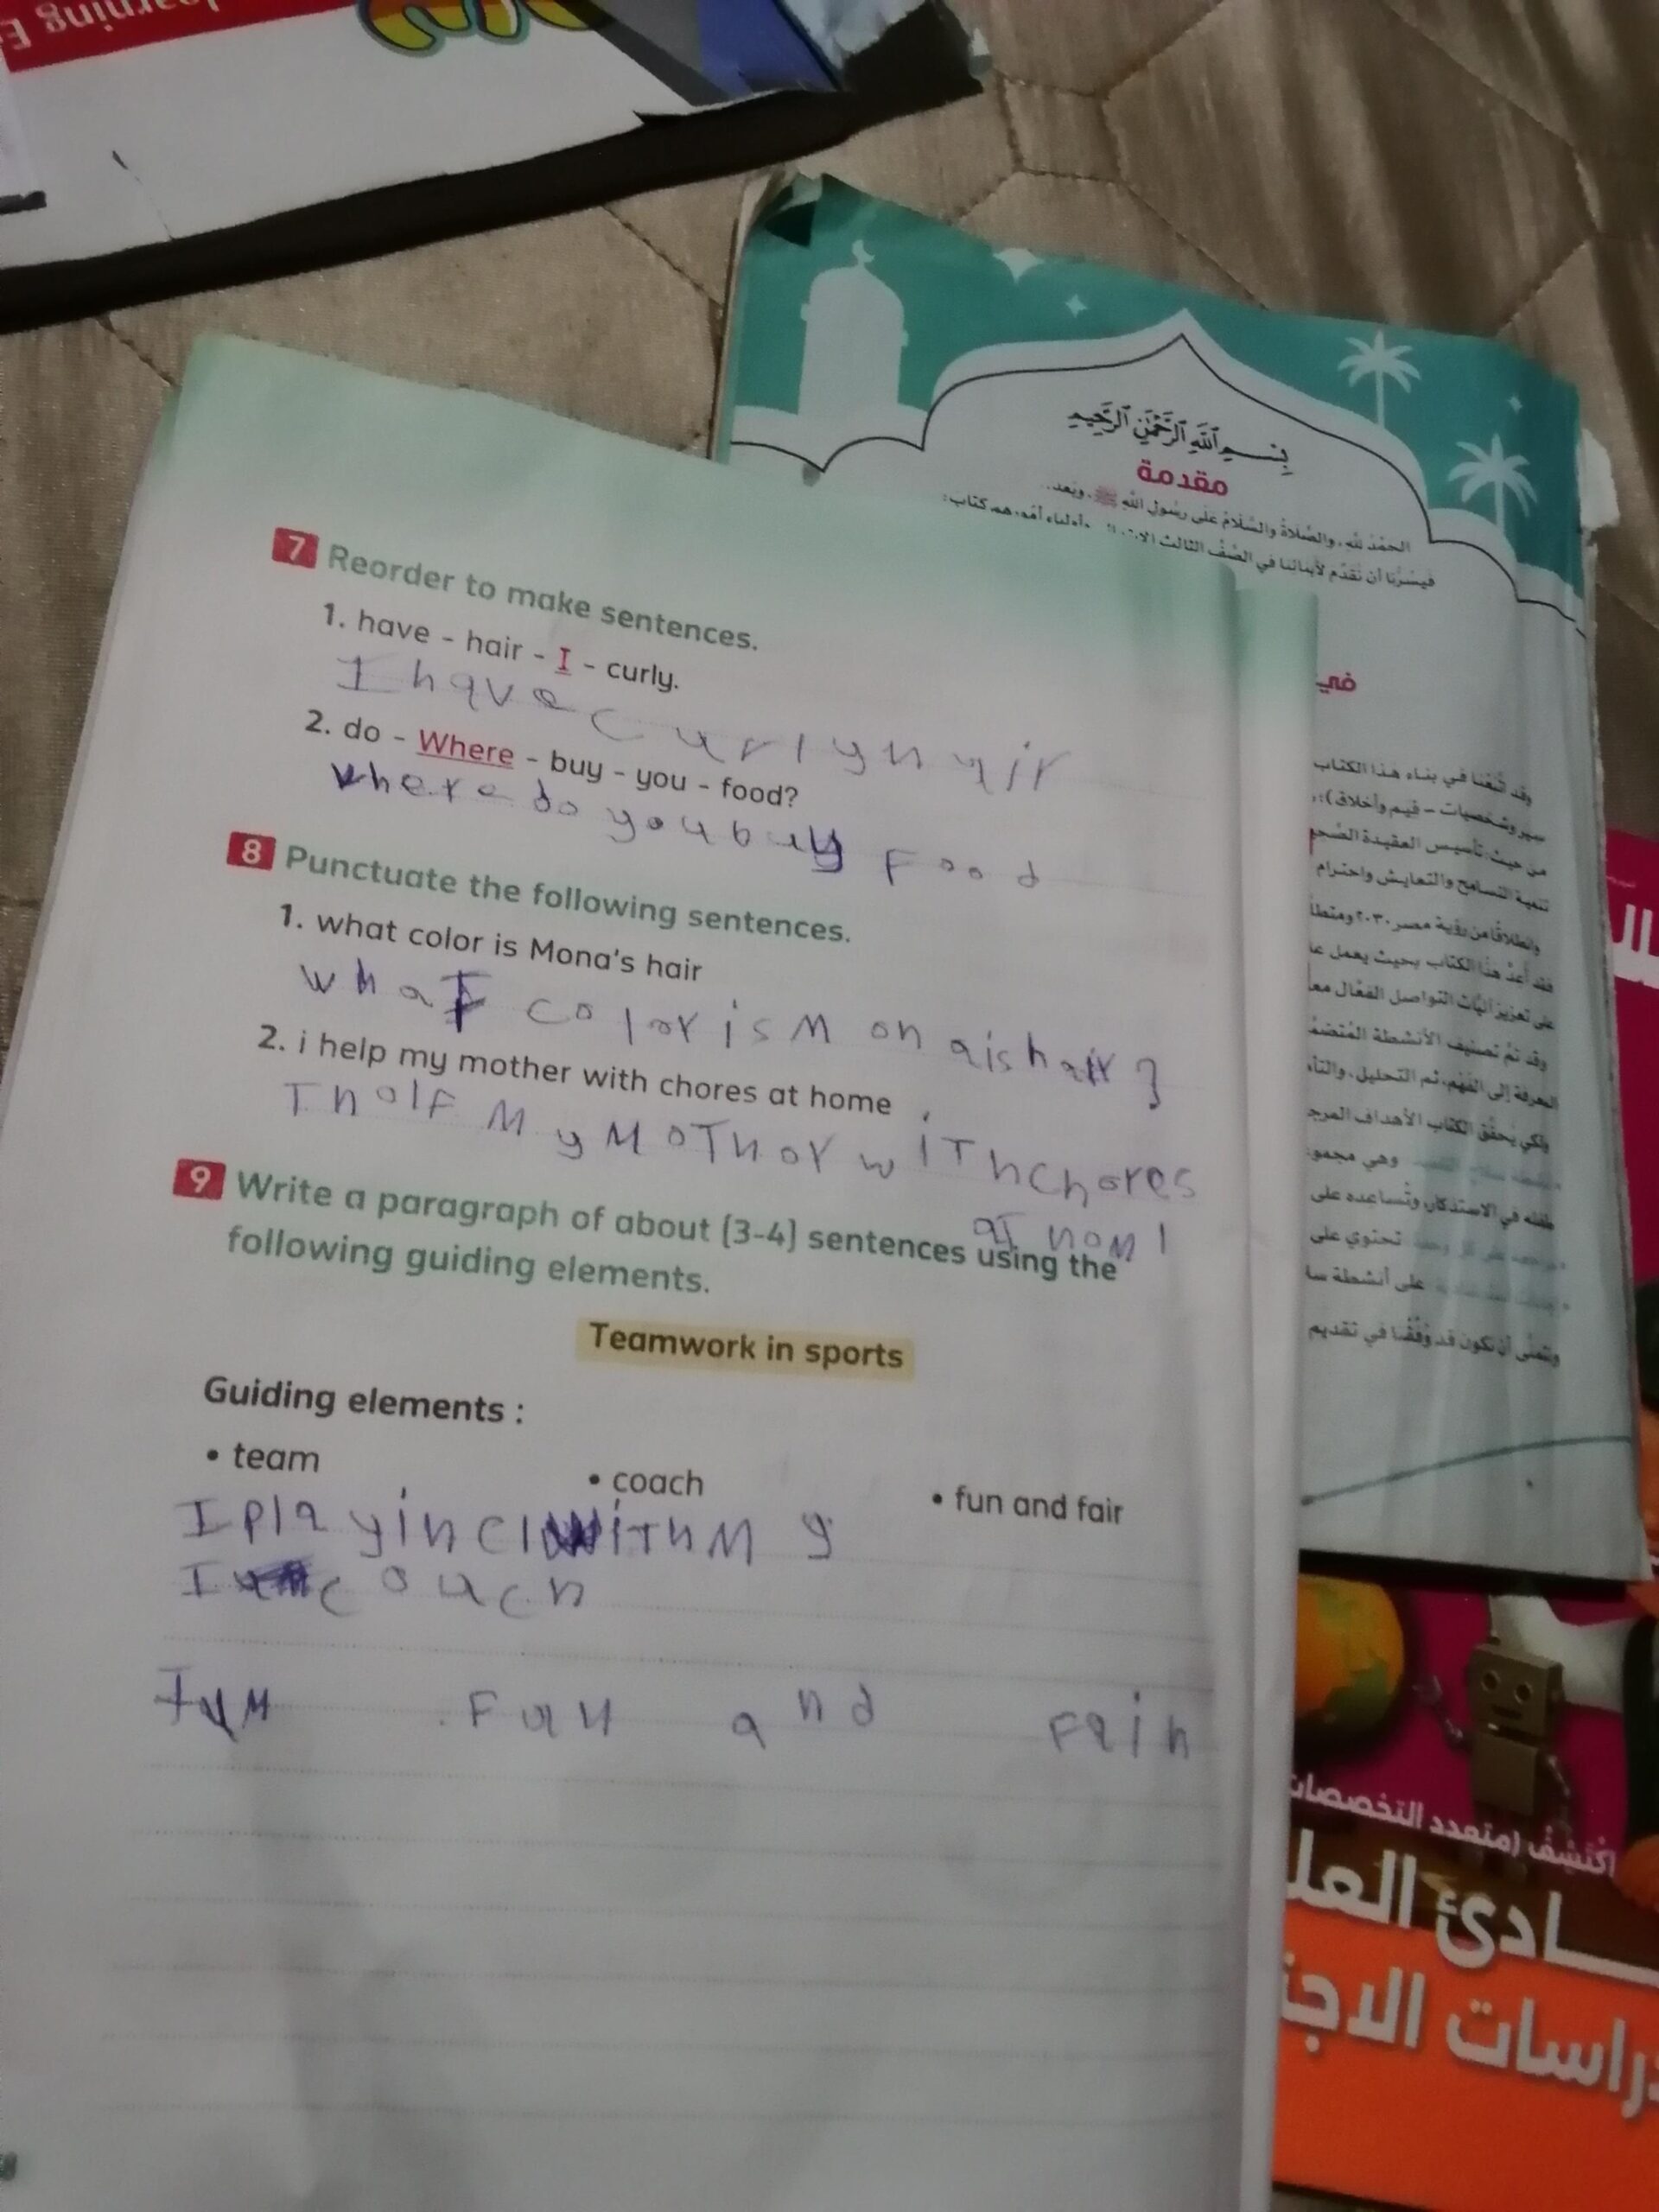 earning E
7 Reorder to make sentences.
1. have - hair - I - curly.
I have curly hair
2. do - Where - buy - you - food?
where do you buy Food
8 Punctuate the following sentences.
1. what color is Mona's hair
what color is Monais hair ?
2. i help my mother with chores at home
I holF My MoThor wiTh chores
aT hoM
9 Write a paragraph of about (3-4) sentences using the
following guiding elements.
Teamwork in sports
Guiding elements :
• team • coach • fun and fair
I play in cl wiTh My
I couch
Fun and Fain
بِسْمِ اللَّهِ الرَّحْمَٰنِ الرَّحِيمِ
مقدمة
الحمْدُ لله، والصَّلاةُ والسَّلامُ على رسُولِ اللهِ ﷺ، وبَعد..
فيسُرُّنا أن نُقدِّم لأبنائنا في الصَّفِّ الثالث
في
وقد اتَّبعْنا في بناء هذا الكتاب
سير وشخصيات - قيم وأخلاق):
من حيث: تأسيس العقيدة
تنمية التسامح والتعايش واحترام
وانطلاقًا من رؤية مصر ٢٠٣٠
فقد أُعدَّ هذا الكتاب بحيث يعمل
على تعزيز آليَّات التواصل الفعَّال
وقد تمَّ تصنيف الأنشطة
المعرفة إلى الفَهْم، ثم التحليل، والتأ
ولكي يُحقِّق الكتاب الأهداف
وهي مجمو
طفله في الاستذكار، وتُساعده على
تحتوي على
على أنشطة
ونتمنَّى أن نكون قد وُفِّقْنا في تقديم
اكْتَشِفْ (متعدد التخصصات
ـادئ العلـ
دراسات الاجتـ